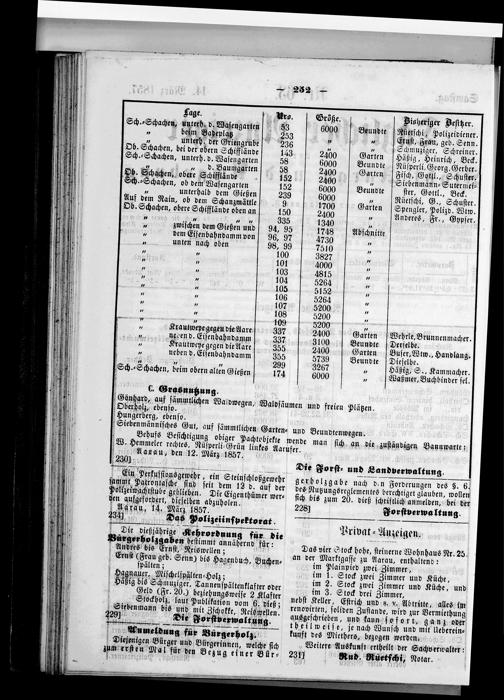 — 252 —
Lage. Nro. Größe. Bisheriger Besitzer.
Sch.-Schachen, unterh. d. Wasengarten 53 6000 Beundte Rüetschi, Polizeidiener.
„ beim Badeplatz 253 „ „ Ernst, Frau, geb. Senn.
„ unterh. der Griengrube 236 „ „ Schmuziger, Schreiner.
Ob. Schachen, bei der obern Schifflände 143 2400 Garten Häßig, Heinrich, Beck.
Sch.-Schachen, unterh. d. Wasengarten 58 6000 Beundte Nüsperli, Georg, Gerber.
„ „ d. Baumgarten 58 2400 Garten Fisch, Gottl., Schuster.
Ob. Schachen, obere Schifflände 152 2400 „ Siebenmann-Sutermeister,
Sch.-Schachen, ob dem Wasengarten 152 6000 Beundte Gottl., Beck.
„ unterhalb dem Gießen 239 6000 „ Rüetschi, G., Schuster.
Auf dem Rain, ob dem Schanzmättle 9 1700 Garten Spengler, Polizd. Wtw.
Ob. Schachen, obere Schifflände oben an 150 2400 „ Anderes, Fr., Gypser.
„ „ 335 1340 „
„ zwischen dem Gießen und 94, 95 1748 Abschnitte
dem Eisenbahndamm von 96, 97 4730 „
unten nach oben 98, 99 7510 „
„ „ 100 3827 „
„ „ 101 4000 „
„ „ 103 4815 „
„ „ 104 5264 „
„ „ 105 5152 „
„ „ 106 5264 „
„ „ 107 5200 „
„ „ 108 5200 „
„ „ 109 5200 „
„ Krautwege gegen die Aare 337 2400 Garten Wehrle, Brunnenmacher.
„ neben d. Eisenbahndamm 337 3100 Beundte Derselbe.
„ Krautwege gegen die Aare 355 2400 Garten Buser, Wtw., Handlang.
„ neben d. Eisenbahndamm 355 5739 Beundte Dieselbe.
„ „ 299 3267 „ Häßig, S., Kammacher.
Sch.-Schachen, beim obern alten Gießen 174 6000 „ Waßmer, Buchbinder sel.
C. Grasnutzung.
Gönhard, auf sämmtlichen Waldwegen, Waldsäumen und freien Plätzen.
Oberholz, ebenso.
Hungerberg, ebenso.
Siebenmännisches Gut, auf sämmtlichen Garten- und Beundtenwegen.
Behufs Besichtigung obiger Pachtobjekte wende man sich an die zuständigen Bannwarte:
W. Hemmeler rechtes, Nüsperli-Grün linkes Aarufer.
Aarau, den 12. März 1857.
230] Die Forst- und Landverwaltung.
Ein Perkussionsgewehr, ein Steinschloßgewehr
sammt Patrontasche sind seit dem 12 d. auf der
Polizeiwachtstube geblieben. Die Eigenthümer werden
aufgefordert, dieselben abzuholen.
Aarau, 14. März 1857.
234] Das Polizeiinspektorat.
Die dießjährige Kehrordnung für die
Bürgerholzgaben bestimmt annähernd für:
Andres bis Ernst, Kriswellen;
Ernst (Frau geb. Senn) bis Hagenbuch, Buchenspälten;
Hagnauer, Mischelspälten-Holz;
Häßig bis Schmuziger, Tannenspältenklafter oder
Geld (Fr. 20.) beziehungsweise 2 Klafter
Stockholz, laut Publikation vom 6. dieß;
Siebenmann bis und mit Zschokke, Kriswellen.
229] Die Forstverwaltung.
Anmeldung für Bürgerholz.
Diejenigen Bürger und Bürgerinnen, welche sich
zum ersten Mal für den Bezug einer Bürgerholzgabe
nach den Forderungen des §. 6.
des Nutzungsreglementes berechtiget glauben, wollen
sich bis zum 20. dieß schriftlich anmelden, bei der
228] Forstverwaltung.
Privat-Anzeigen.
Das vier Stock hohe, steinerne Wohnhaus Nr. 25
an der Marktgasse zu Aarau, enthaltend:
im Plainpied zwei Zimmer,
im 1. Stock zwei Zimmer und Küche,
im 2. Stock zwei Zimmer und Küche, und
im 3. Stock drei Zimmer,
nebst Keller, Estrich und s. v. Abtritte, alles im
renovirten, soliden Zustande, wird zur Vermiethung
ausgeschrieben, und kann sofort, ganz oder
theilweise, je nach Wunsch und mit Uebereinkunft
des Miethers, bezogen werden.
Weitere Auskunft ertheilt der Sachverwalter:
231] Rud. Rüetschi, Notar.